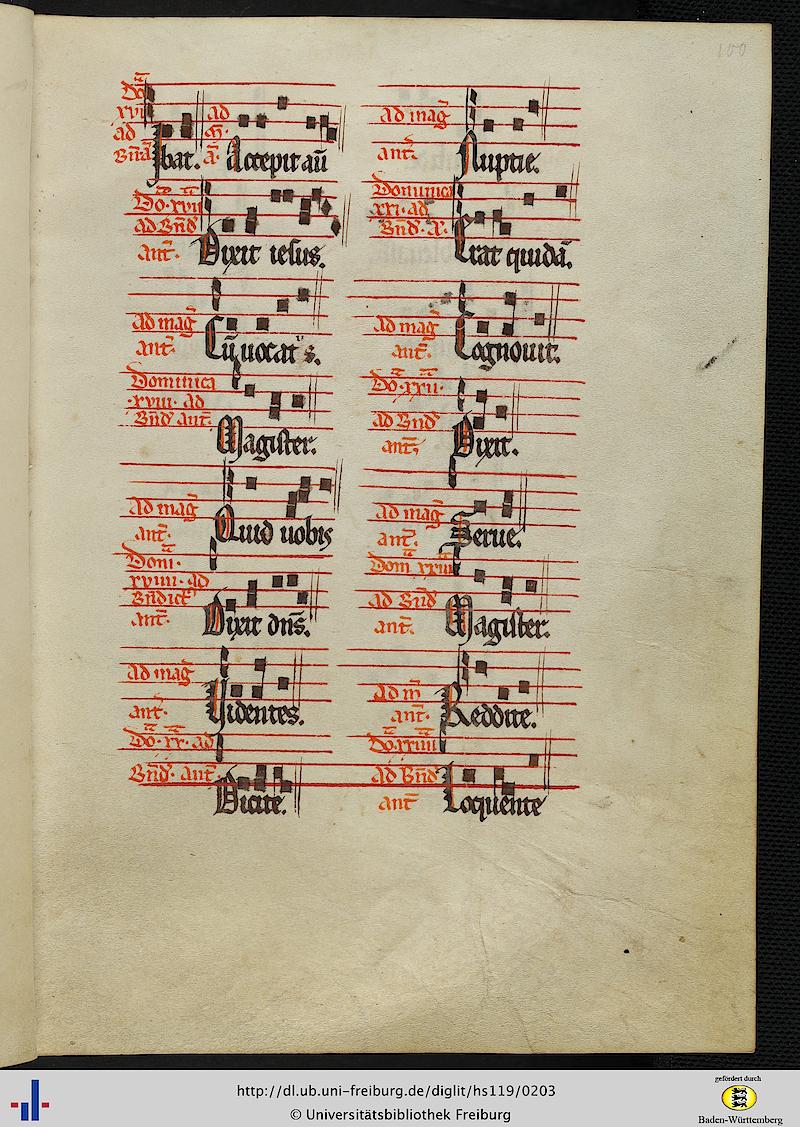 100
Do᷑
xvi
ad
Bn̄d
Ibat.
ad
m̄.
a᷑.
Accepit au᷑
Do᷑. xvii
ad Bn̄d
ant᷑.
Dixit iesus.
ad mag᷑
ant᷑.
Cū uocat᷑s.
Dominica
.xviii. ad
Bn̄d ant᷑.
Magister.
ad mag᷑
ant᷑.
Quid uobis
Dom᷑.
xviiii. ad
Bn̄dict᷑
ant᷑.
Dixit dn̄s.
ad mag᷑
ant᷑.
Videntes.
Do᷑. xx. ad
Bn̄d. ant᷑.
Dicite.
ad mag᷑
ant᷑.
Nuptie.
Dominica
xxi. ad
Bn̄d. a᷑.
Erat quidā.
ad mag᷑
ant᷑.
Cognouit.
Do᷑. xxii.
ad Bn̄d
ant᷑.
Dixit.
ad mag᷑
ant᷑.
Serue.
Dom᷑ xxiii
ad Bn̄d
ant᷑.
Magister.
ad m᷑
ant᷑.
Reddite.
Do᷑. xxiiii
ad Bn̄d
ant᷑
Loquente
http://dl.ub.uni-freiburg.de/diglit/hs119/0203
© Universitätsbibliothek Freiburg
gefördert durch
Baden-Württemberg